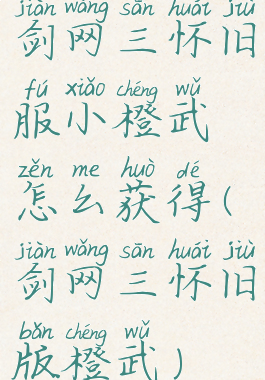 jiàn wǎng sān huái jiù
剑网三怀旧
fú xiǎo chéng wǔ
服小橙武
zěn me huò dé
怎么获得(
jiàn wǎng sān huái jiù
剑网三怀旧
bǎn chéng wǔ
版橙武)